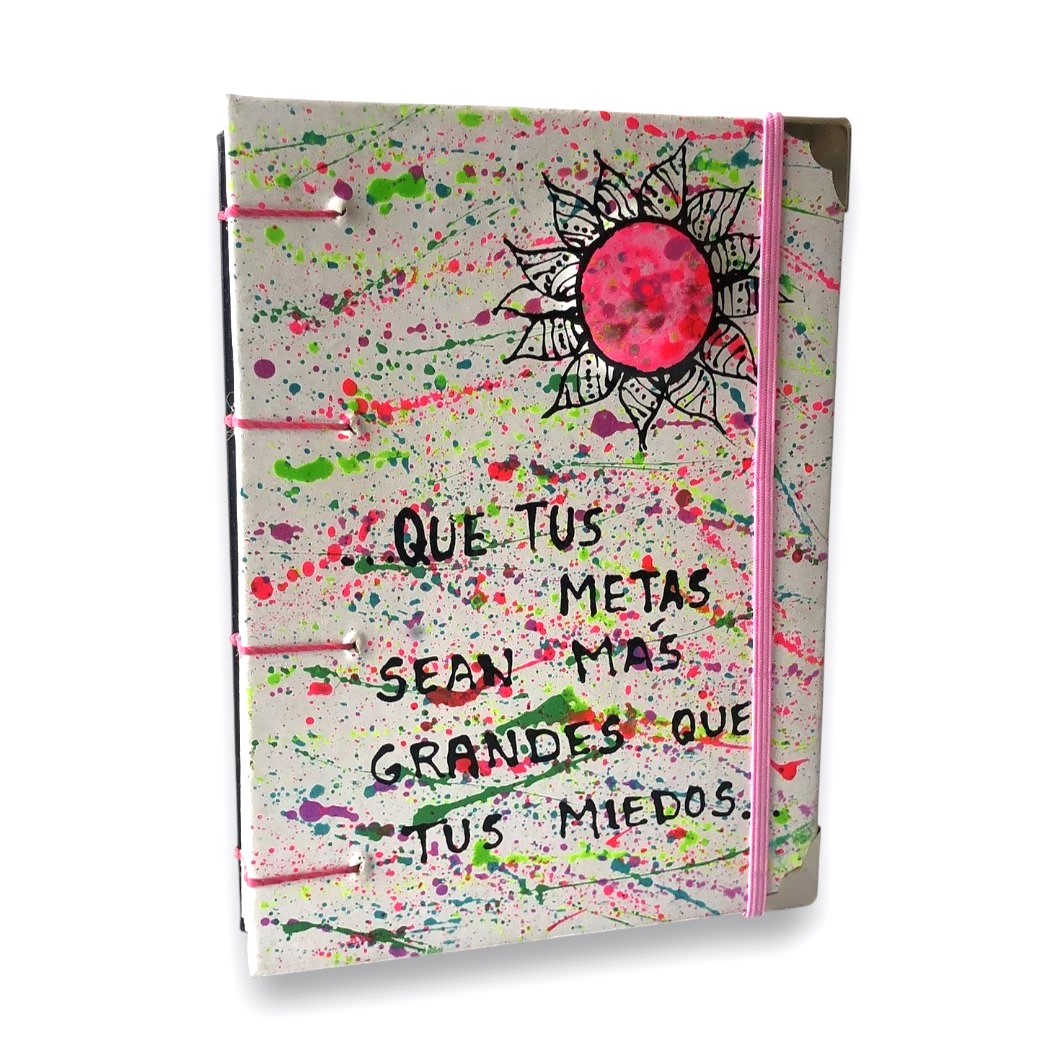 ...QUE TUS
METAS
SEAN MÁS
GRANDES QUE
TUS MIEDOS...